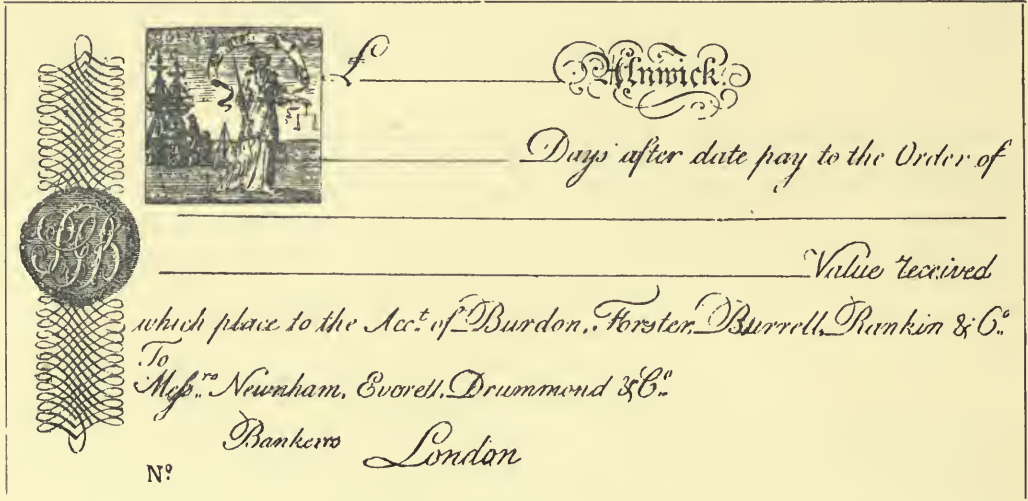 £ Alnwick.
Days after date pay to the Order of
Value received
which place to the Acc.t of Burdon, Forster, Burrell, Rankin & Co.
To
Messrs. Newnham, Everell, Drummond & Co.
Bankers London
No.